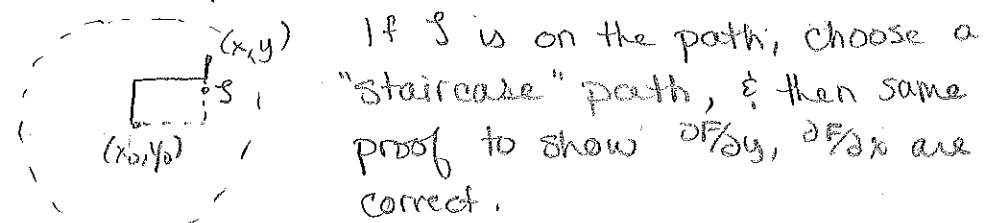 (x,y)
ζ
(x₀,y₀)
If ζ is on the path, choose a
"staircase" path, & then same
proof to show ∂F/∂y, ∂F/∂x are
correct.